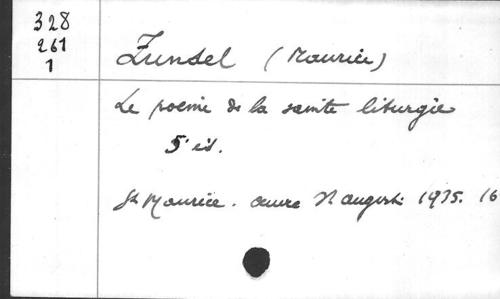 328
261
1
Zundel (Maurice)
Le poeme de la sainte liturgie
5e éd.
St Maurice. œuvre St August. 1935. 16